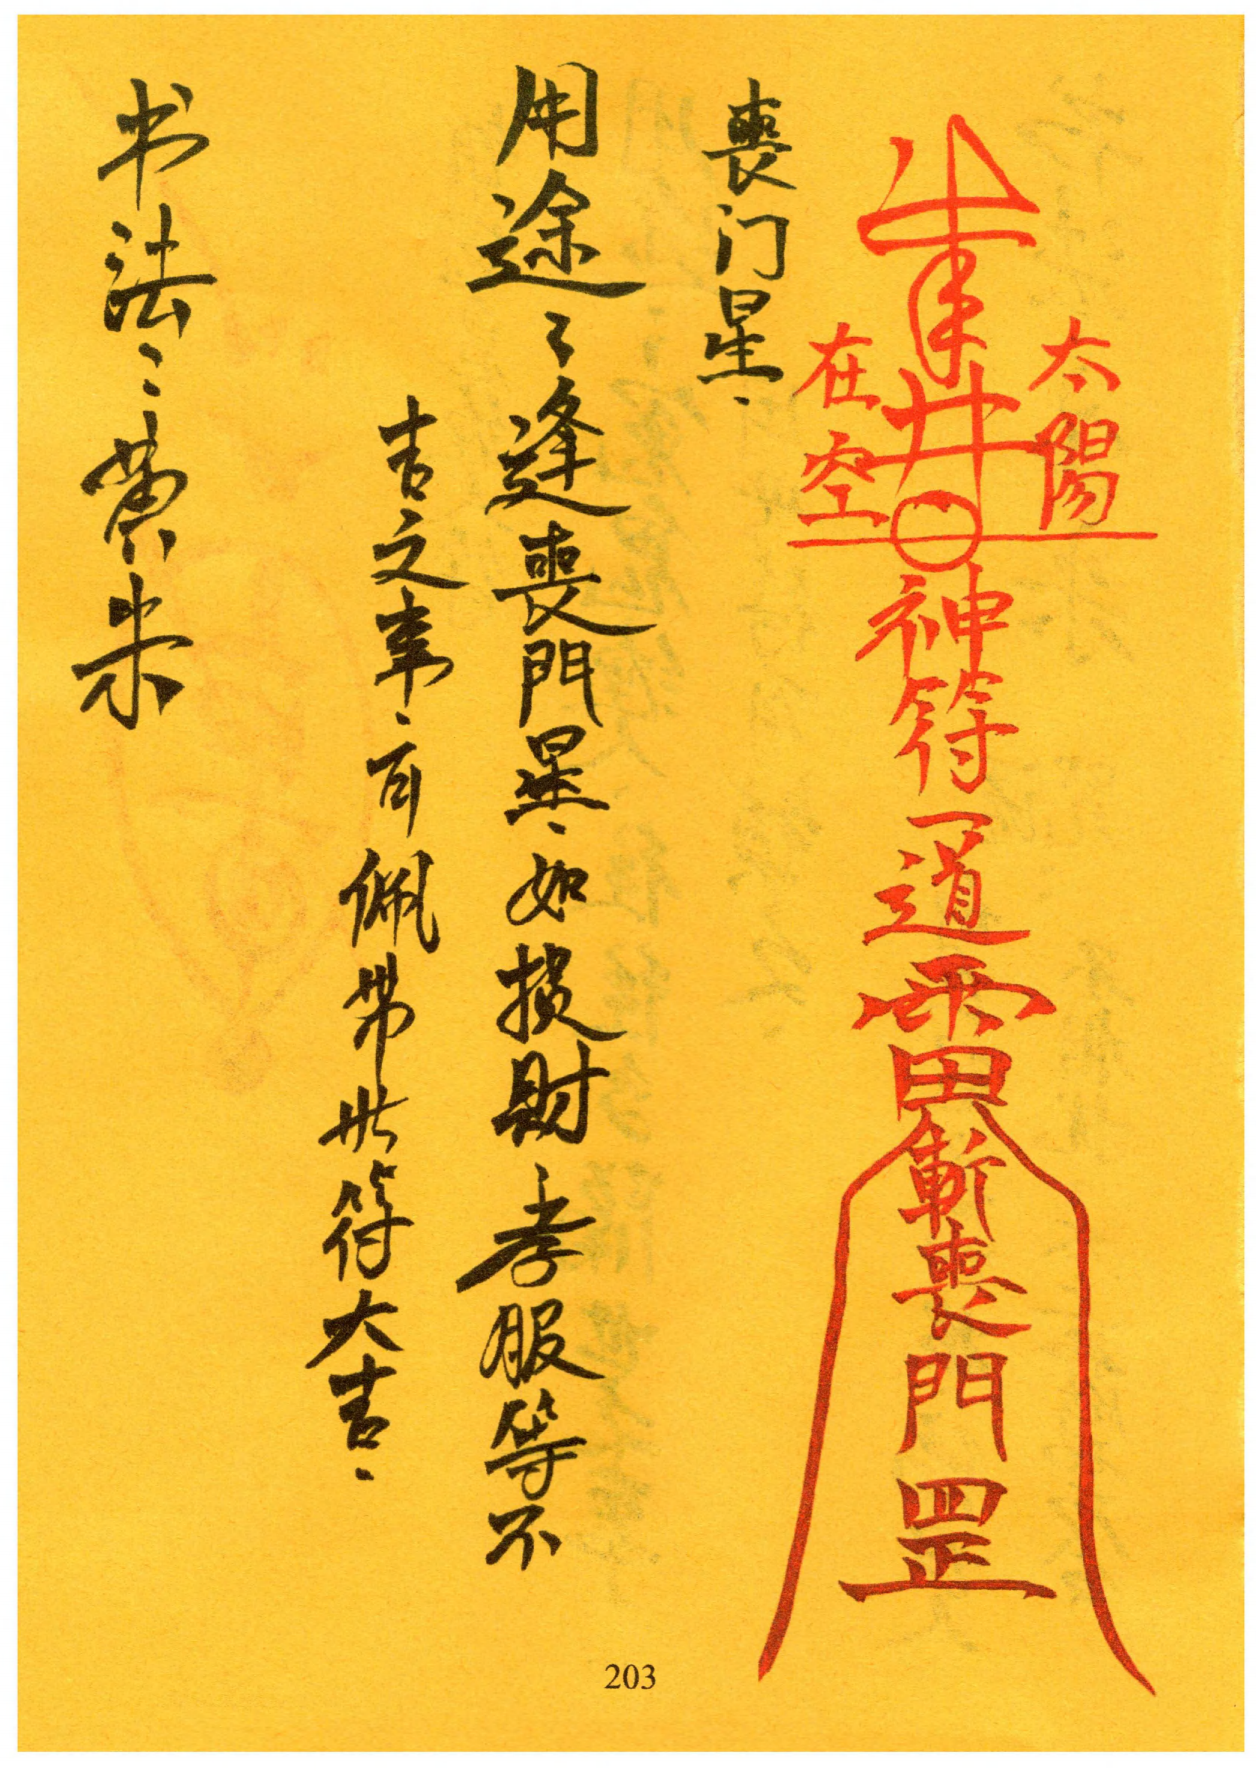 太陽
在空
神符一道雷斬喪門罡
喪门星、
用途：逢喪門星、如损財、孝服等不
吉之事、可佩带此符大吉、
书法：黄朱
203